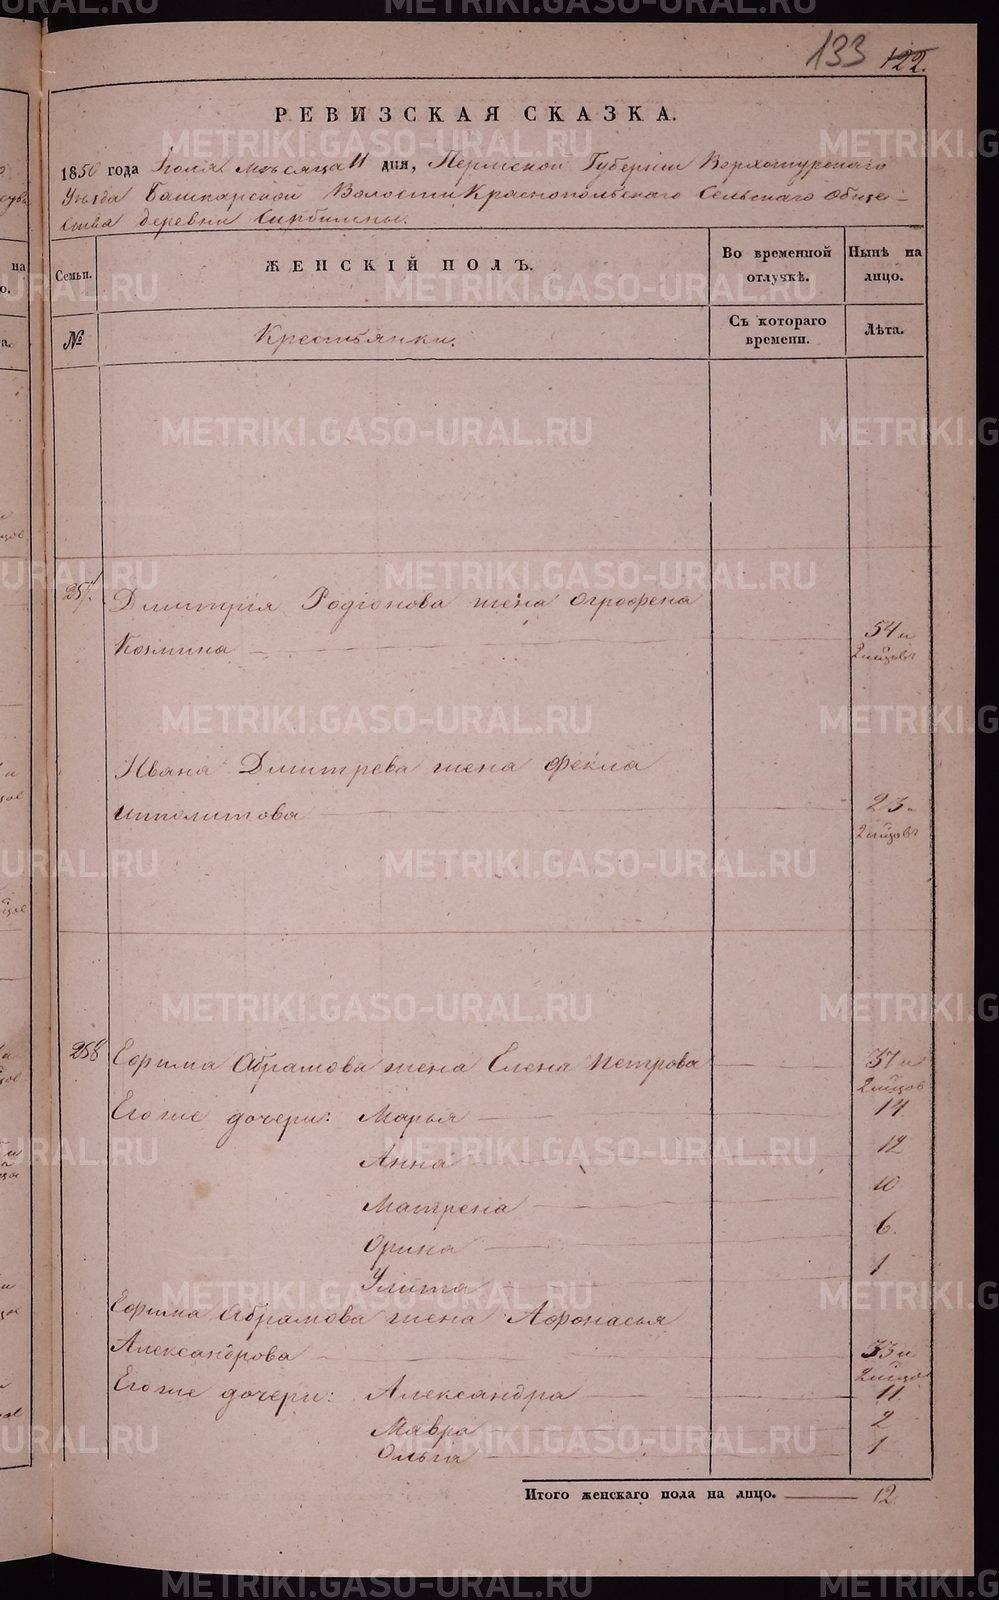 133 122.
РЕВИЗСКАЯ СКАЗКА.
1850 года Іюля мѣсяца 11 дня, Пермской Губерніи Верхотурскаго
Уѣзда Башкарской Волости Краснопольскаго Сельскаго Обще-
ства деревни
Семьи. ЖЕНСКІЙ ПОЛЪ. Во временной отлучкѣ. Нынѣ на лицо.
№ Крестьянки. Съ котораго времени. Лѣта.
257. Дмитрія Родіонова жена Огрофена
Козмина 54 и
2 мѣсцовъ
Ивана Дмитрева жена Фекла
Ипполитова 23
2 мѣсцовъ
258 Ефима Абрамова жена Елена Петрова 37 и
2 мѣсцов
Его же дочери: Марья 14
Анна 12
Матрена 10
Орина 6.
Улита 1
Ефима Абрамова жена Афонасья
Александрова 33 и
2 мѣсцо
Его же дочери: Александра 11
Мавра 2
Ольга 1
Итого женскаго пола на лицо. 12.
METRIKI.GASO-URAL.RU